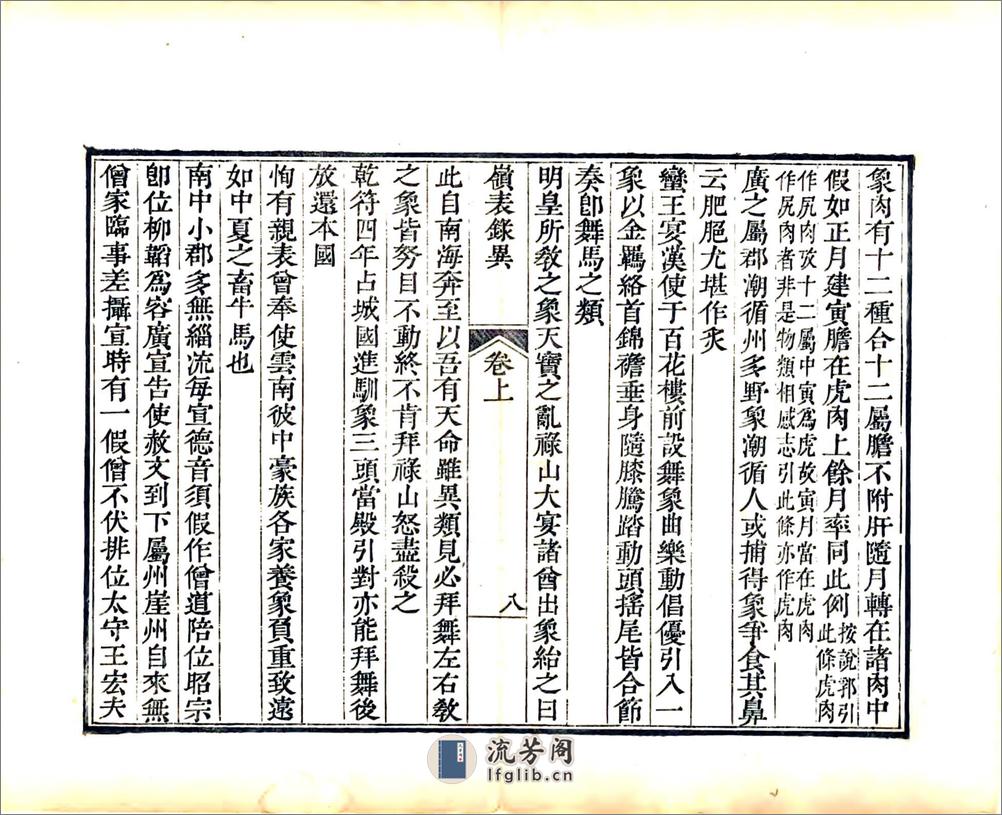 象肉有十二種合十二屬膽不附肝隨月轉在諸肉中
假如正月建寅膽在虎肉上餘月率同此例按說郛引此條虎肉
作尻肉攷十二屬中寅爲虎故寅月當在虎肉
作尻肉者非是物類相感志引此條亦作虎肉
廣之屬郡潮循州多野象潮循人或捕得象爭食其鼻
云肥脃尤堪作炙
蠻王宴漢使于百花樓前設舞象曲樂動倡優引入一
象以金羈絡首錦襜垂身隨膝騰踏動頭搖尾皆合節
奏卽舞馬之類
明皇所敎之象天寶之亂祿山大宴諸酋出象紿之曰
嶺表錄異
卷上
八
此自南海奔至以吾有天命雖異類見必拜舞左右敎
之象皆努目不動終不肯拜祿山怒盡殺之
乾符四年占城國進馴象三頭當殿引對亦能拜舞後
放還本國
恂有親表曾奉使雲南彼中豪族各家養象負重致遠
如中夏之畜牛馬也
南中小郡多無緇流每宣德音須假作僧道陪位昭宗
卽位柳韜爲容廣宣告使赦文到下屬州崖州自來無
僧家臨事差攝宣時有一假僧不伏排位太守王宏夫
流芳阁
lfglib.cn